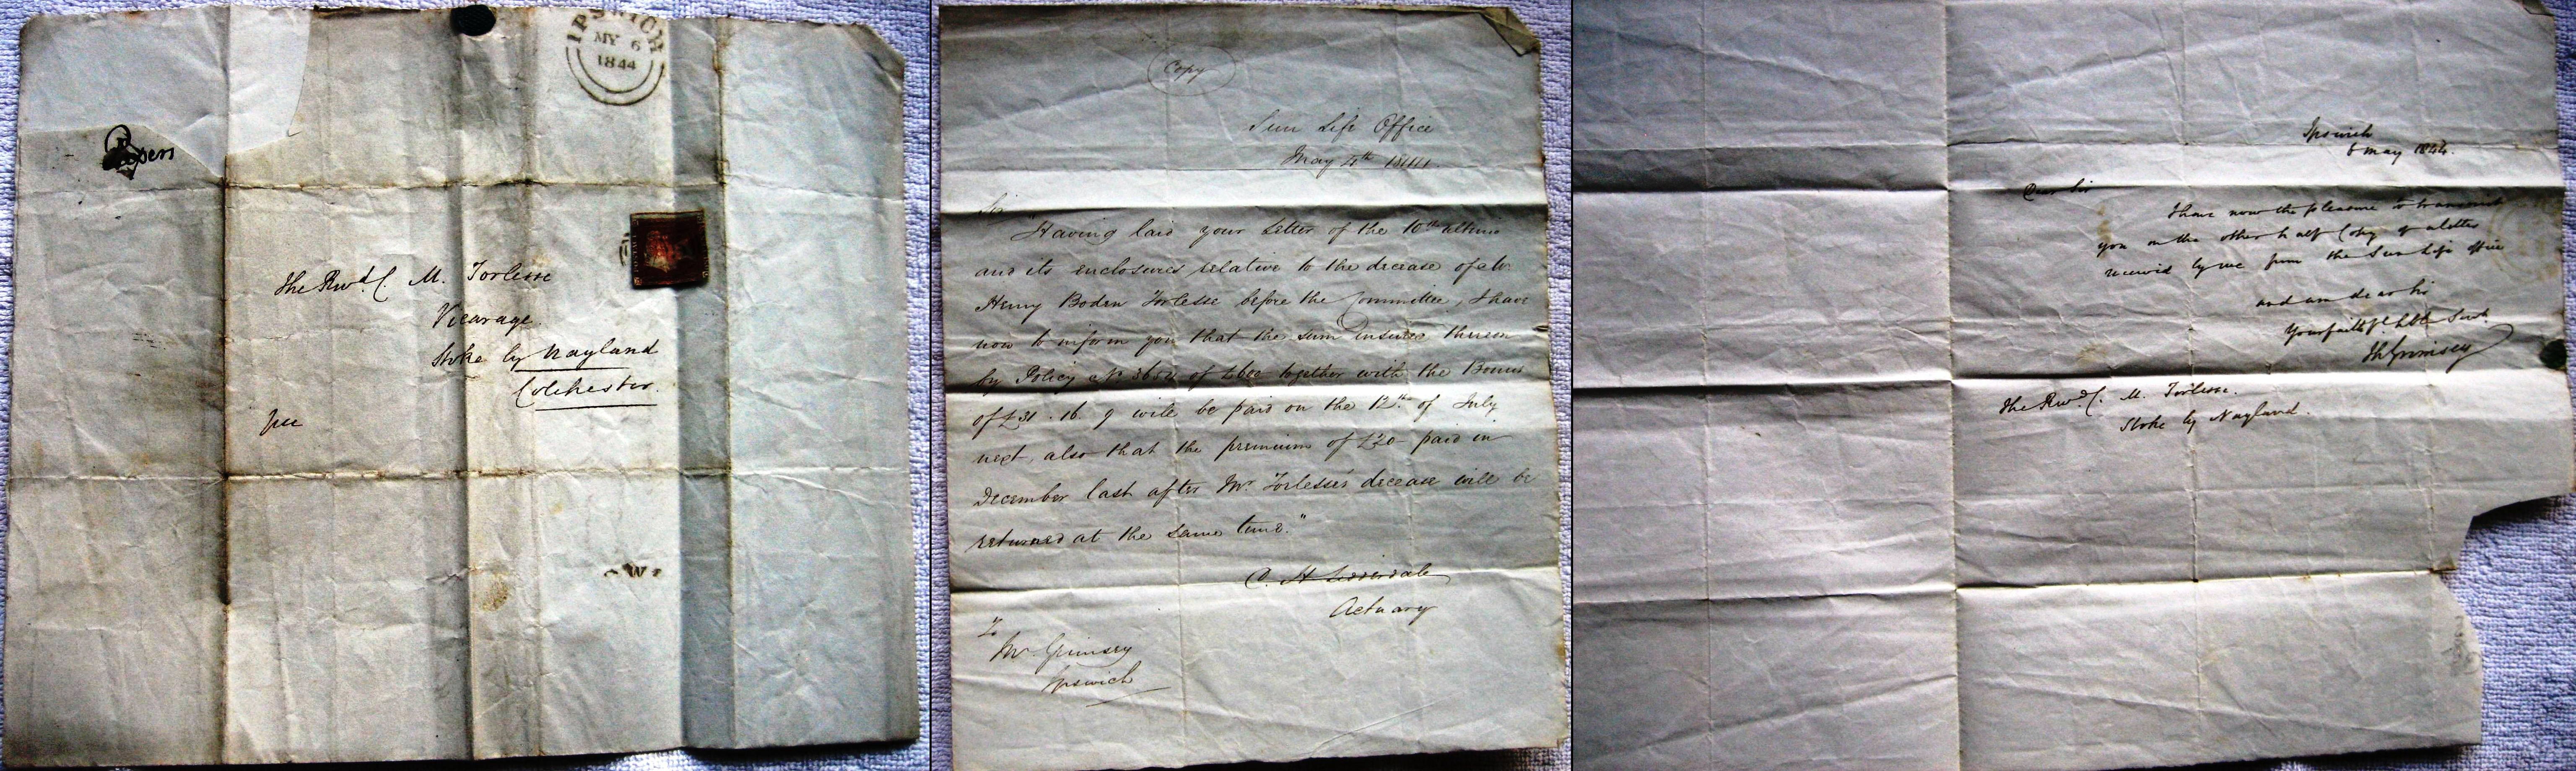 IPSWICH
MY 6
1844
Papers
The Revd. C. M. Torlesse
Vicarage
Stoke by Nayland
Colchester.
pre
W
Copy
Sun Life Office
May 4th 1844
Sir
"Having laid your Letter of the 10th ultimo
and its enclosures relative to the decease of Mr
Henry Boden Torlesse before the Committee, I have
now to inform you that the sum insured thereon
by Policy No 3654 of £600 together with the Bonus
of £31 . 16 . 9 will be paid on the 12th of July
next, also that the premium of £20 - paid in
December last after Mr. Torlesse's decease will be
returned at the same time."
C. H. Lidderdale
Actuary
To
Mr Grimsey
Ipswich
Ipswich
6 May 1844.
Dear Sir
I have now the pleasure to transmit
you on the other half Copy of a letter
received by me from the Sun Life Office
and am dear Sir
Your faithfl. hble Servt.
Grimsey
The Revd. C. M. Torlesse.
Stoke by Nayland.